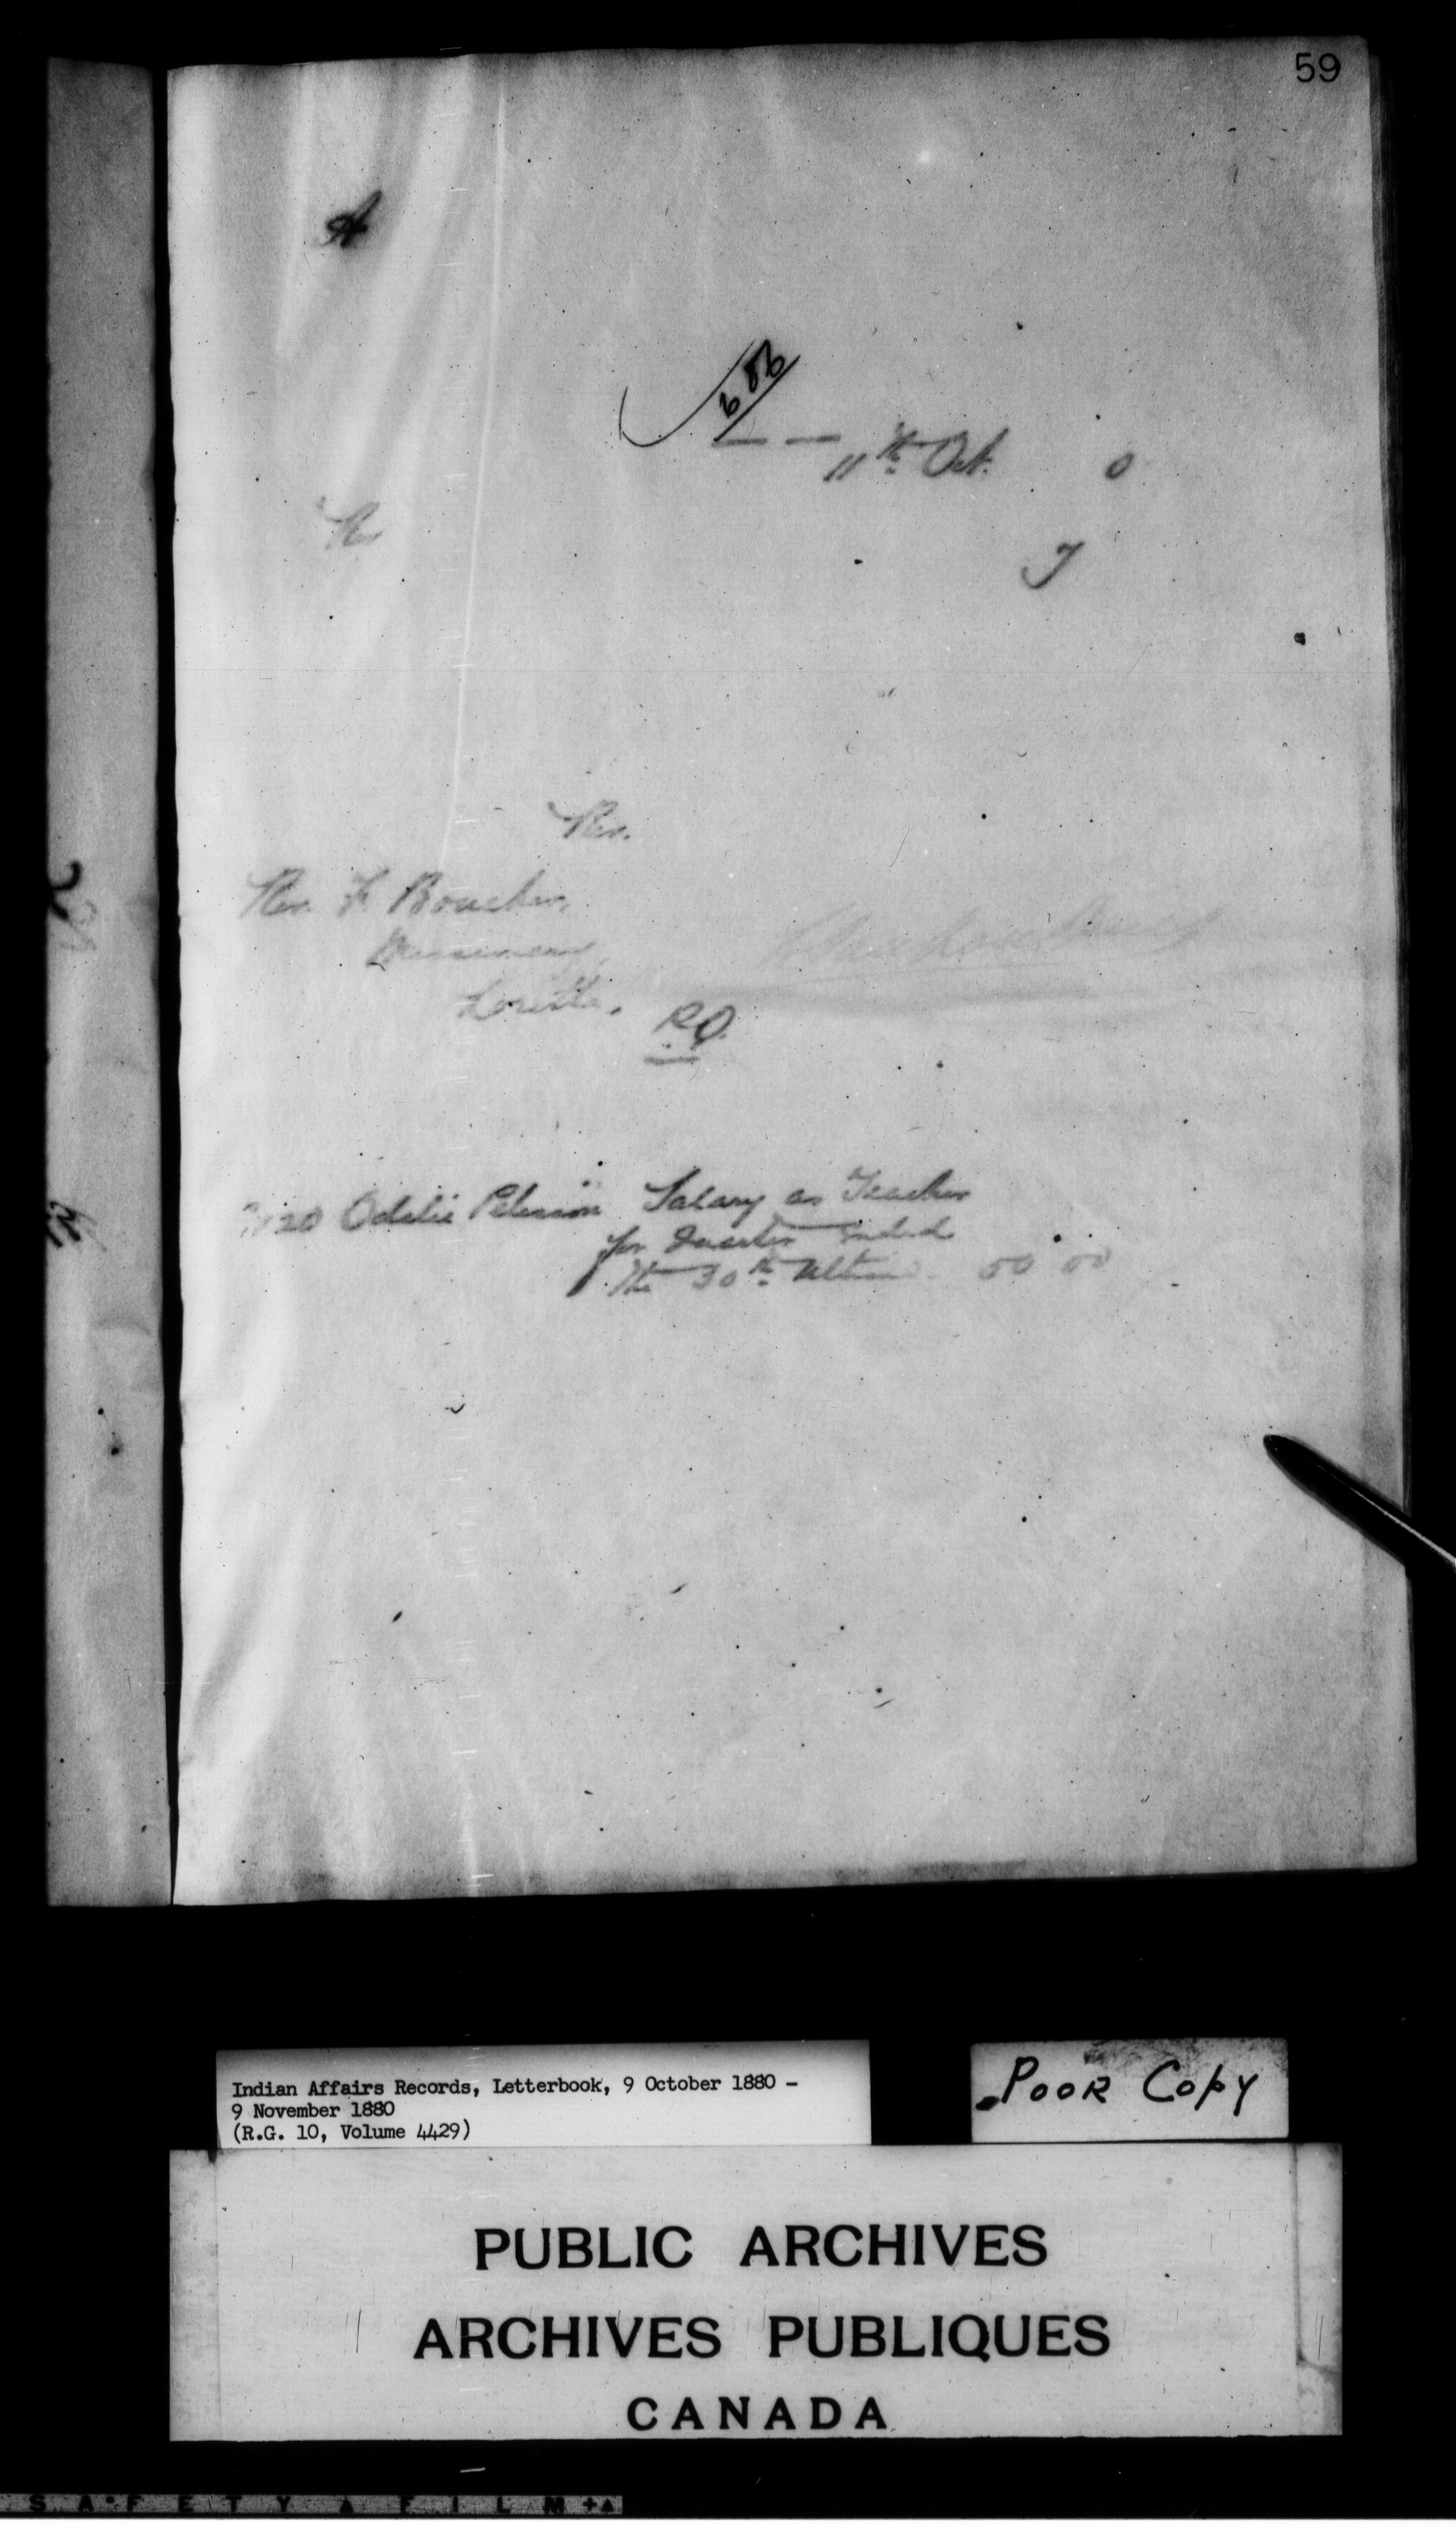 59
A
686
11th Oct. 0
Rev
I
Rev.
Rev. F Boucher,
Missionary,
Lorette.
P.Q.
20 Odelie Salary as Teacher
for Quarter ended
the 30th Ultimo 50 00
Indian Affairs Records, Letterbook, 9 October 1880 -
9 November 1880
(R.G. 10, Volume 4429)
POOR COPY
PUBLIC ARCHIVES
ARCHIVES PUBLIQUES
CANADA
SAFETY FILM